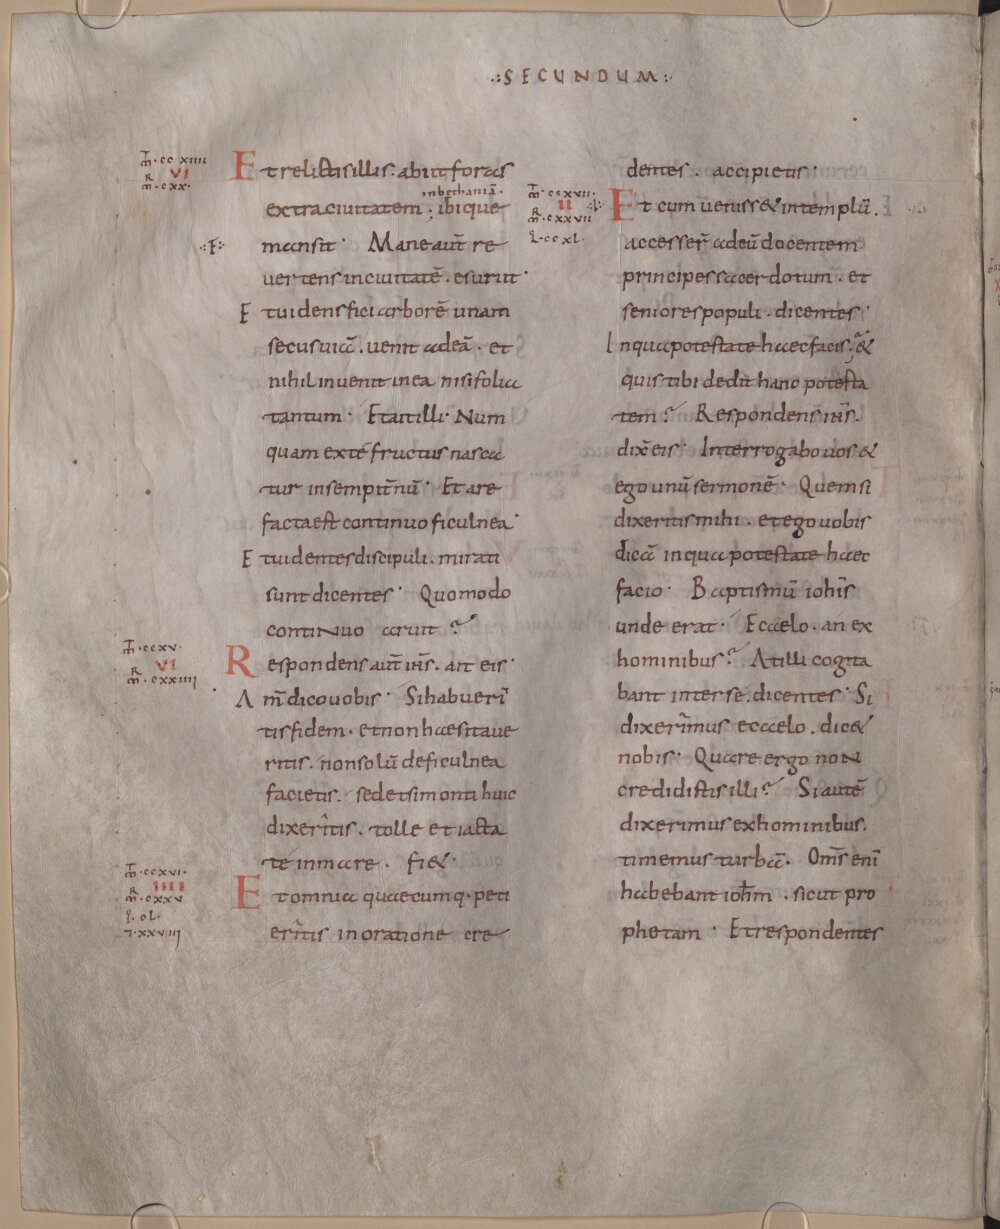 ·:SECUNDUM:·
m̄·ccxiiii
VI
m̄·cxx·
Et relictis illis· abiit foras
in bethaniā·
extra ciuitatem ; ibique
·:F:·
mansit· Mane aut̄ re
uertens in ciuitatē· esuriit·
Et uidens fici arborē unam
secus uiā· uenit ad eā· et
nihil inuenit in ea nisi folia
tantum· Et ait illi· Num
quam ex te fructus nasca
tur in sempit̄nū· Et are
facta est continuo ficulnea·
Et uidentes discipuli· mirati
sunt dicentes· Quomodo
continuo aruit ?
m̄·ccxv·
VI
m̄·cxxiiii
Respondens aut̄ ih̄s· ait eis·
Am̄ dico uobis· Si habueri
tis fidem· et non haesitaue
ritis· non solū de ficulnea
facietis· sed et si monti huic
dixeritis· tolle et iacta
te in mare· fi&·
m̄·ccxvi·
IIII
m̄·cxxv
Et omnia quaecumq· peti
eritis in oratione cre
dentes· accipietis·
m̄·ccxvii·
II
m̄·cxxvii
L·ccxl·
Et cum ueniss& in templū·
accesser̄ ad eū docentem
principes sacerdotum· et
seniores populi· dicentes·
In qua potestate haec facis ? &
quis tibi dedit hanc potesta
tem ? Respondens ih̄s·
dix̄ eis· Interrogabo uos &
ego unū sermonē· Quem si
dixeritis mihi· et ego uobis
dicā in qua potestate haec
facio· Baptismū ioh̄is
unde erat· E caelo· an ex
hominibus ? At illi cogita
bant inter se· dicentes· Si
dixerimus e caelo· dic&
nobis· Quare ergo non
credidistis illi ? Si autē
dixerimus ex hominibus·
timemus turbā· Om̄s enī
habebant ioh̄m· sicut pro
phetam· Et respondentes